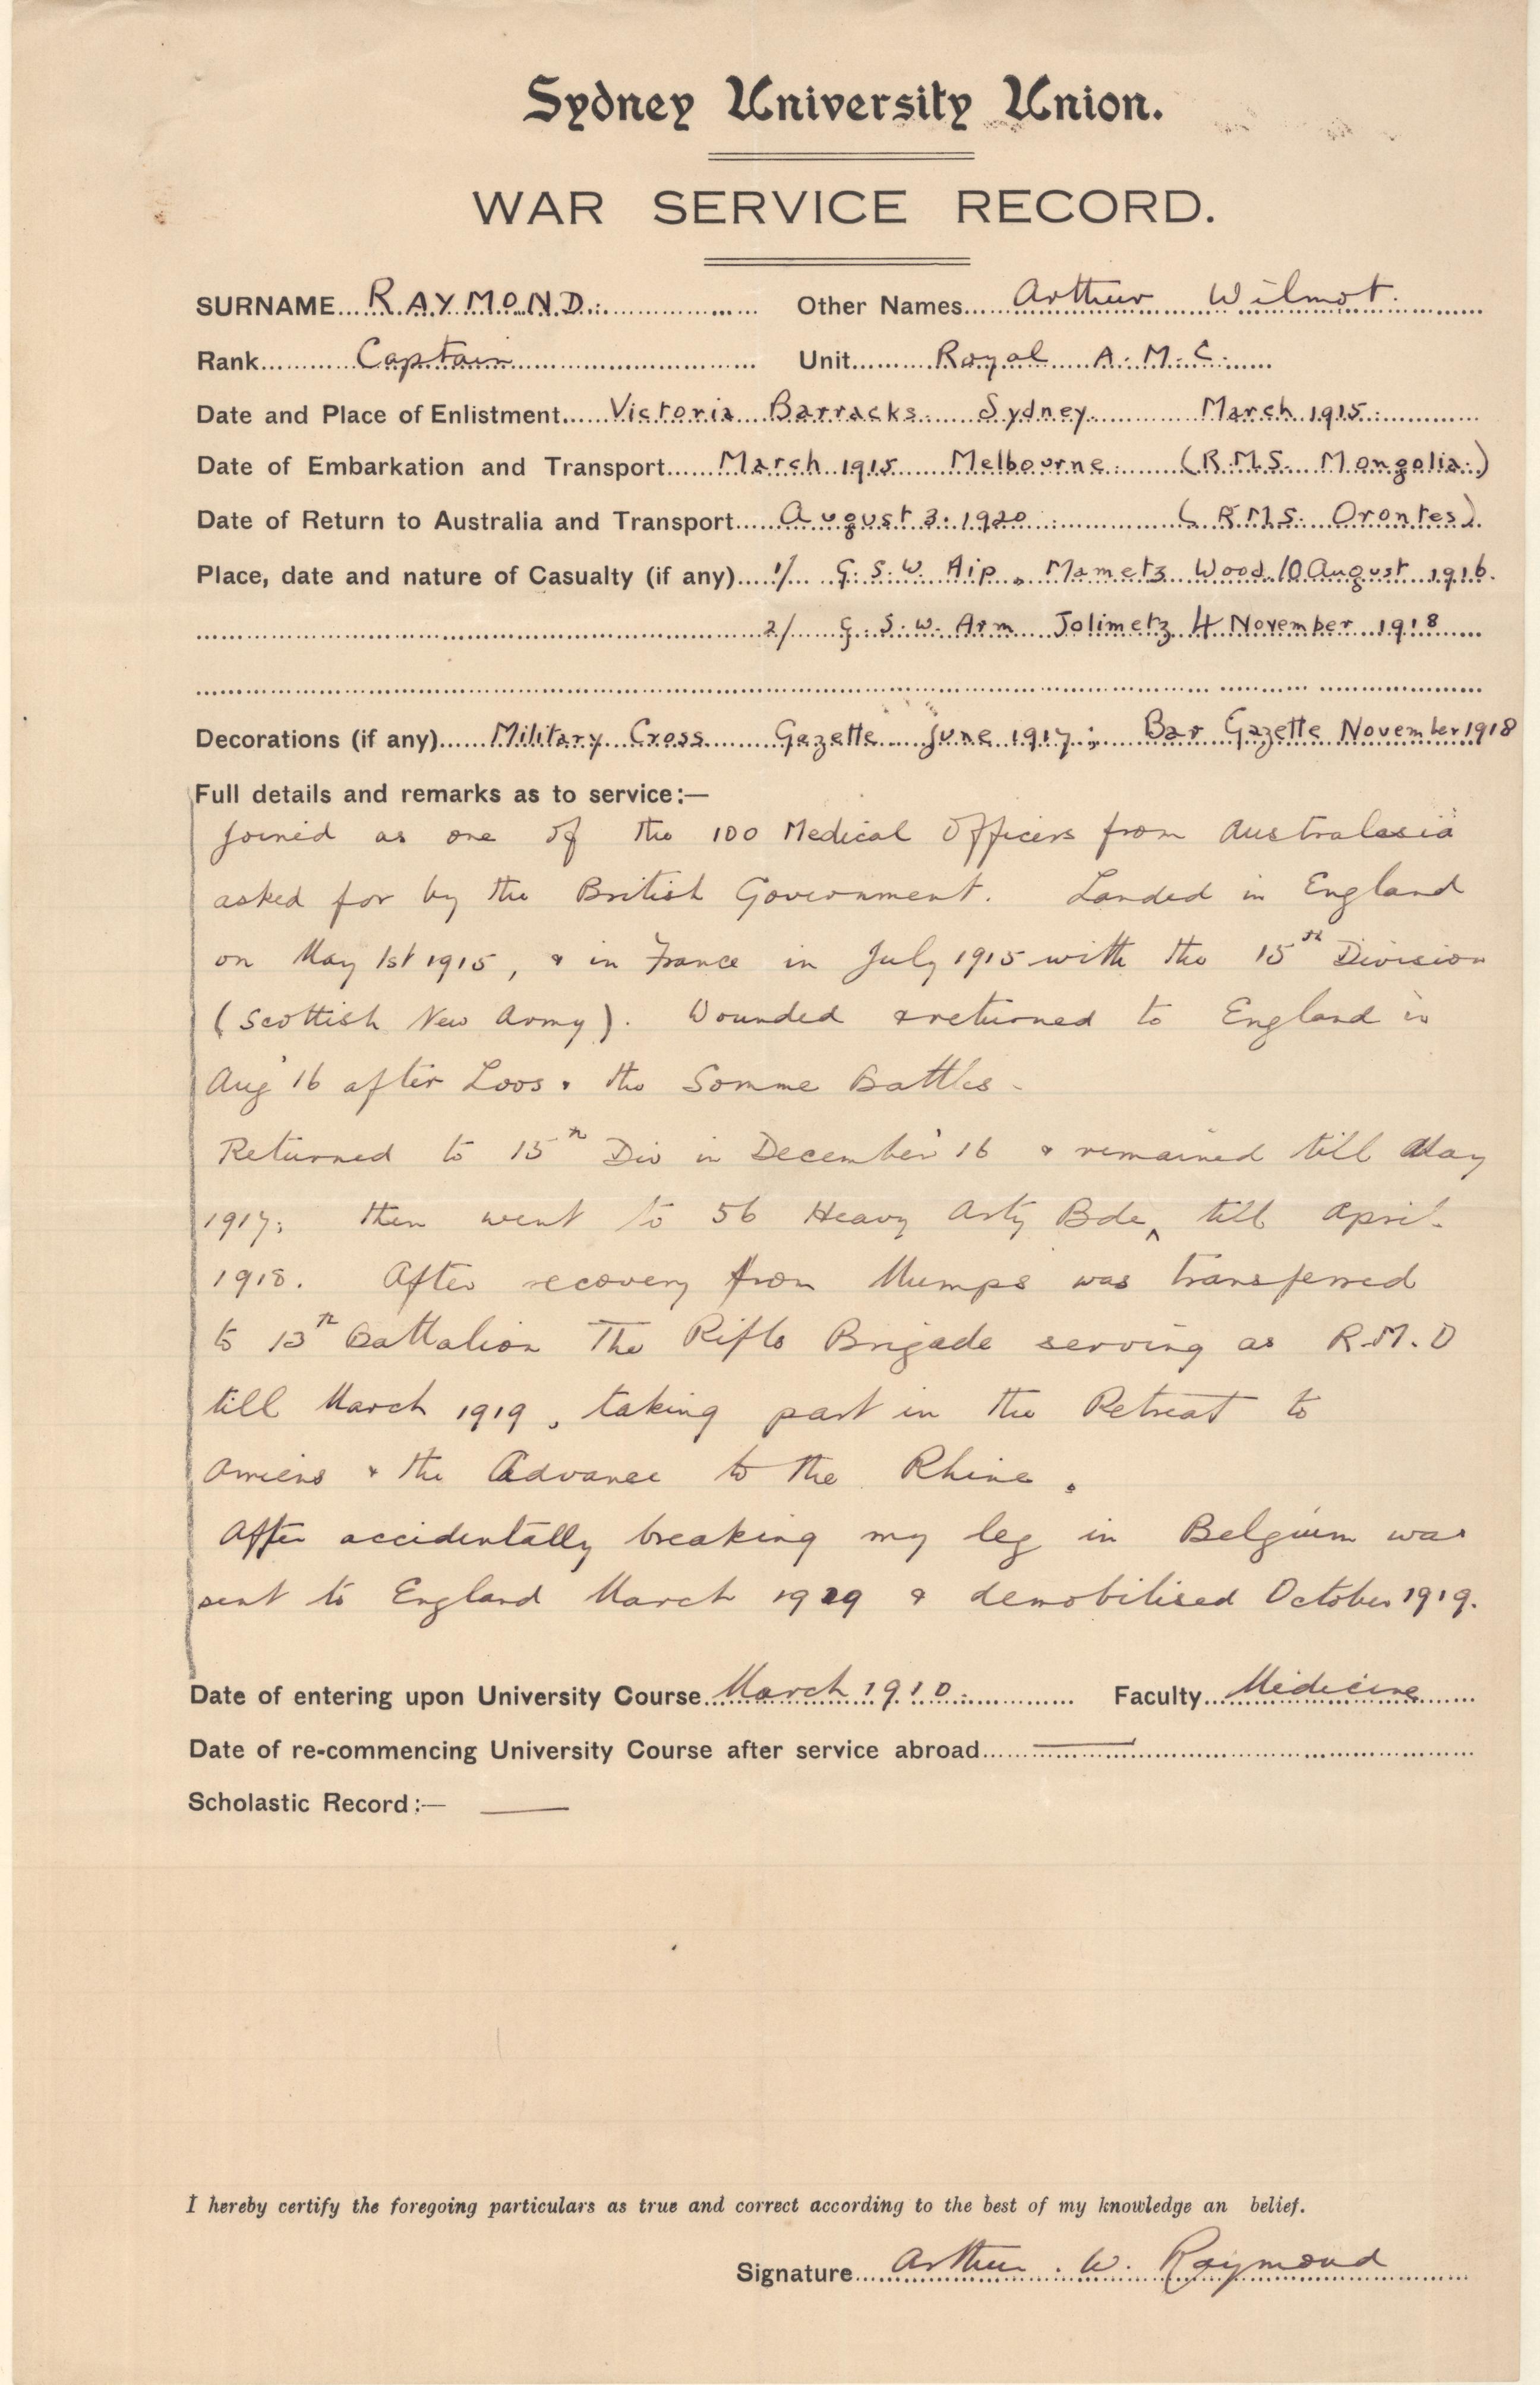 Sydney University Union.
WAR SERVICE RECORD.
SURNAME... RAYMOND. Other Names... Arthur Wilmot.
Rank... Captain Unit... Royal A.M.C.
Date and Place of Enlistment... Victoria Barracks. Sydney. March 1915.
Date of Embarkation and Transport... March 1915 Melbourne. (R.M.S. Mongolia.)
Date of Return to Australia and Transport... August 3. 1920. (R.M.S. Orontes).
Place, date and nature of Casualty (if any)... 1/ G.S.W. Hip. Mametz Wood. 10 August 1916.
2/ G.S.W. Arm Jolimetz 4 November 1918
Decorations (if any)... Military Cross Gazette June 1917; Bar Gazette November 1918
Full details and remarks as to service:—
Joined as one of the 100 Medical Officers from Australasia
asked for by the British Government. Landed in England
on May 1st 1915, & in France in July 1915 with the 15th Division
(Scottish New Army). Wounded & returned to England in
Aug '16 after Loos & the Somme Battles.
Returned to 15th Div in December '16 & remained till May
1917; then went to 56 Heavy Arty Bde, till April
1918. After recovery from Mumps was transferred
to 13th Battalion The Rifle Brigade serving as R.M.O
till March 1919, taking part in the Retreat to
Amiens & the Advance to the Rhine.
After accidentally breaking my leg in Belgium was
sent to England March 1919 & demobilised October 1919.
Date of entering upon University Course... March 1910. Faculty... Medicine
Date of re-commencing University Course after service abroad... —
Scholastic Record:— —
I hereby certify the foregoing particulars as true and correct according to the best of my knowledge an belief.
Signature... Arthur. W. Raymond